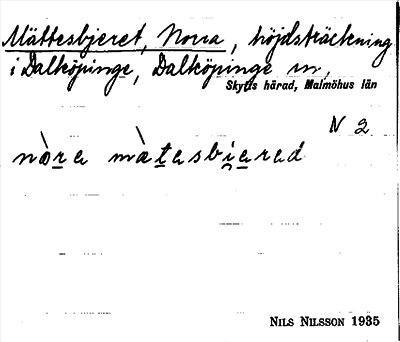 Mättesbjeret, Norra, höjdsträckning
i Dalköpinge, Dalköpinge sn,
Skytts härad, Malmöhus län
N 2
nòra màtasbiarad
NILS NILSSON 1935